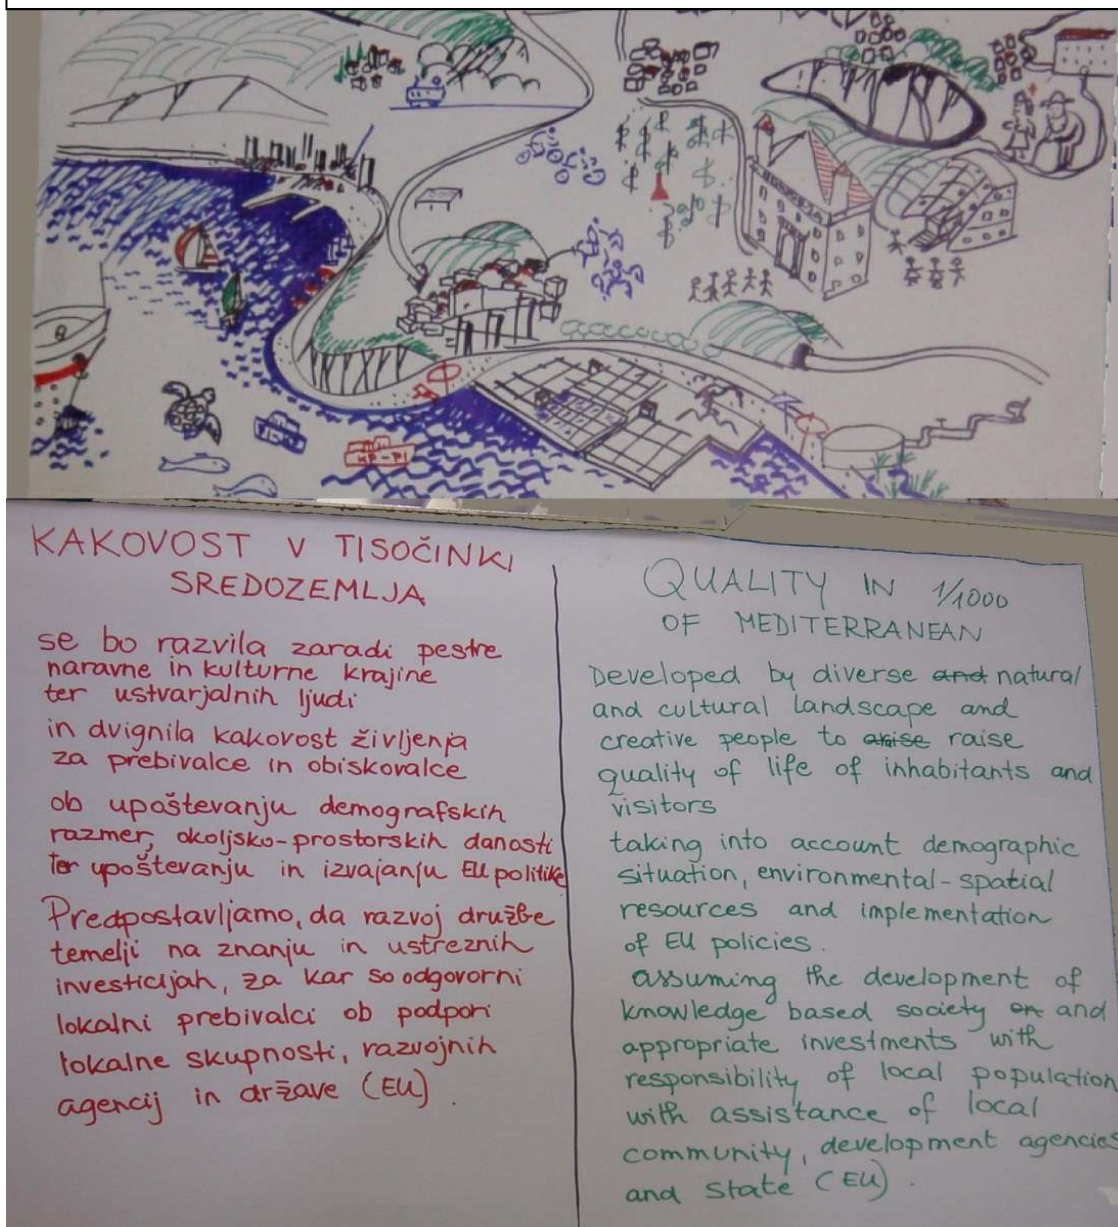 KP-P1
KAKOVOST V TISOČINKI
SREDOZEMLJA
se bo razvila zaradi pestre
naravne in kulturne krajine
ter ustvarjalnih ljudi
in dvignila kakovost življenja
za prebivalce in obiskovalce
ob upoštevanju demografskih
razmer, okoljsko-prostorskih danosti
ter upoštevanju in izvajanju EU politike
Predpostavljamo, da razvoj družbe
temelji na znanju in ustreznih
investicijah, za kar so odgovorni
lokalni prebivalci ob podpori
lokalne skupnosti, razvojnih
agencij in države (EU).
QUALITY IN 1/1000
OF MEDITERRANEAN
Developed by diverse and natural
and cultural landscape and
creative people to arise raise
quality of life of inhabitants and
visitors
taking into account demographic
situation, environmental-spatial
resources and implementation
of EU policies.
assuming the development of
knowledge based society on and
appropriate investments with
responsibility of local population
with assistance of local
community, development agencies
and State (EU).